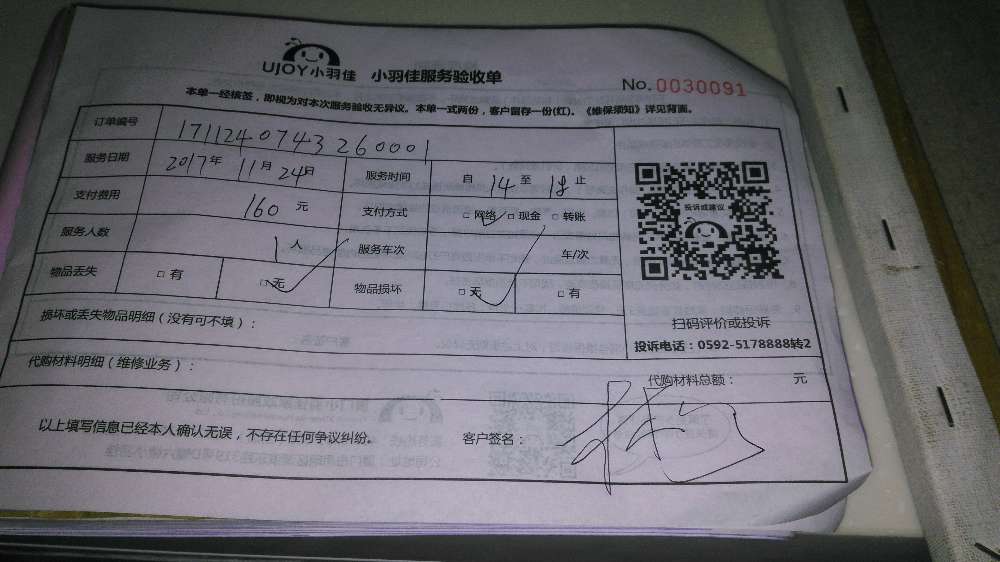 UJOY小羽佳 小羽佳服务验收单
No. 0030091
本单一经核签，即视为对本次服务验收无异议。本单一式两份，客户留存一份(红)。《维保须知》详见背面。
订单编号 1711240743260001
服务日期 2017年 11月 24日 服务时间 自 14 至 18 止
支付费用 160 元 支付方式 □ 网络 □ 现金 □ 转账
服务人数 1 人 服务车次 车/次
物品丢失 □ 有 □ 无 物品损坏 □ 无 □ 有
投诉或建议
扫码评价或投诉
投诉电话：0592-5178888转2
损坏或丢失物品明细（没有可不填）：
代购材料明细（维修业务）： 代购材料总额： 元
以上填写信息已经本人确认无误，不存在任何争议纠纷。 客户签名：